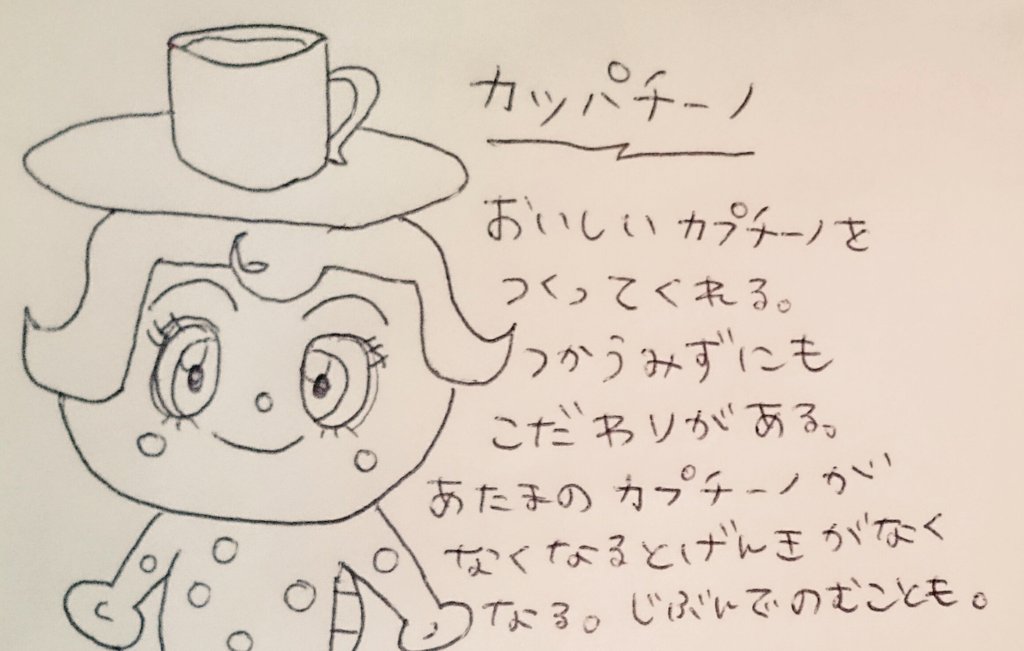 カッパチーノ
おいしいカプチーノを
つくってくれる。
つかうみずにも
こだわりがある。
あたまのカプチーノが
なくなるとげんきがなく
なる。じぶんでのむことも。